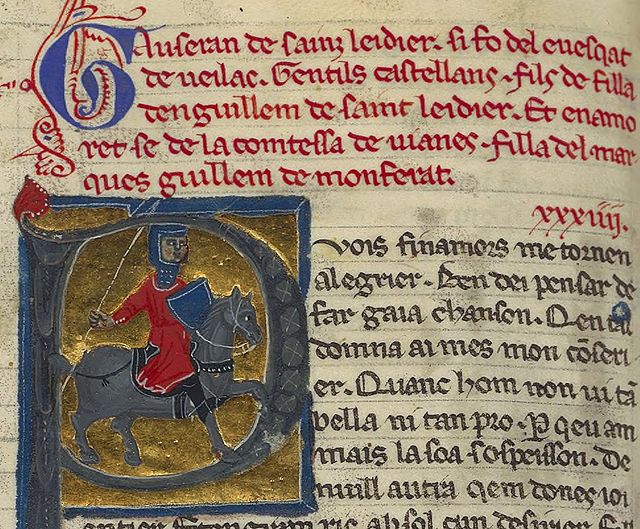 Gauseran de sainz leidier. si fo del euesqat
de ueilac. Gentils castellans. fils de filla
den guillem de saint leidier. Et enamo
ret-se de la comtessa de uianes. filla del mar
ques guillem de monferat.
xxxiiij.
Puois finamors me tornen
alegrier. Ben dei pensar de
far gaia chanson. Qen tal
domna ai mes mon cōseri
er. Quanc hom non ui tā
bella ni tan pro. P qeu am
mais la soa sospeisson. De
nuill autra qem dones ioi